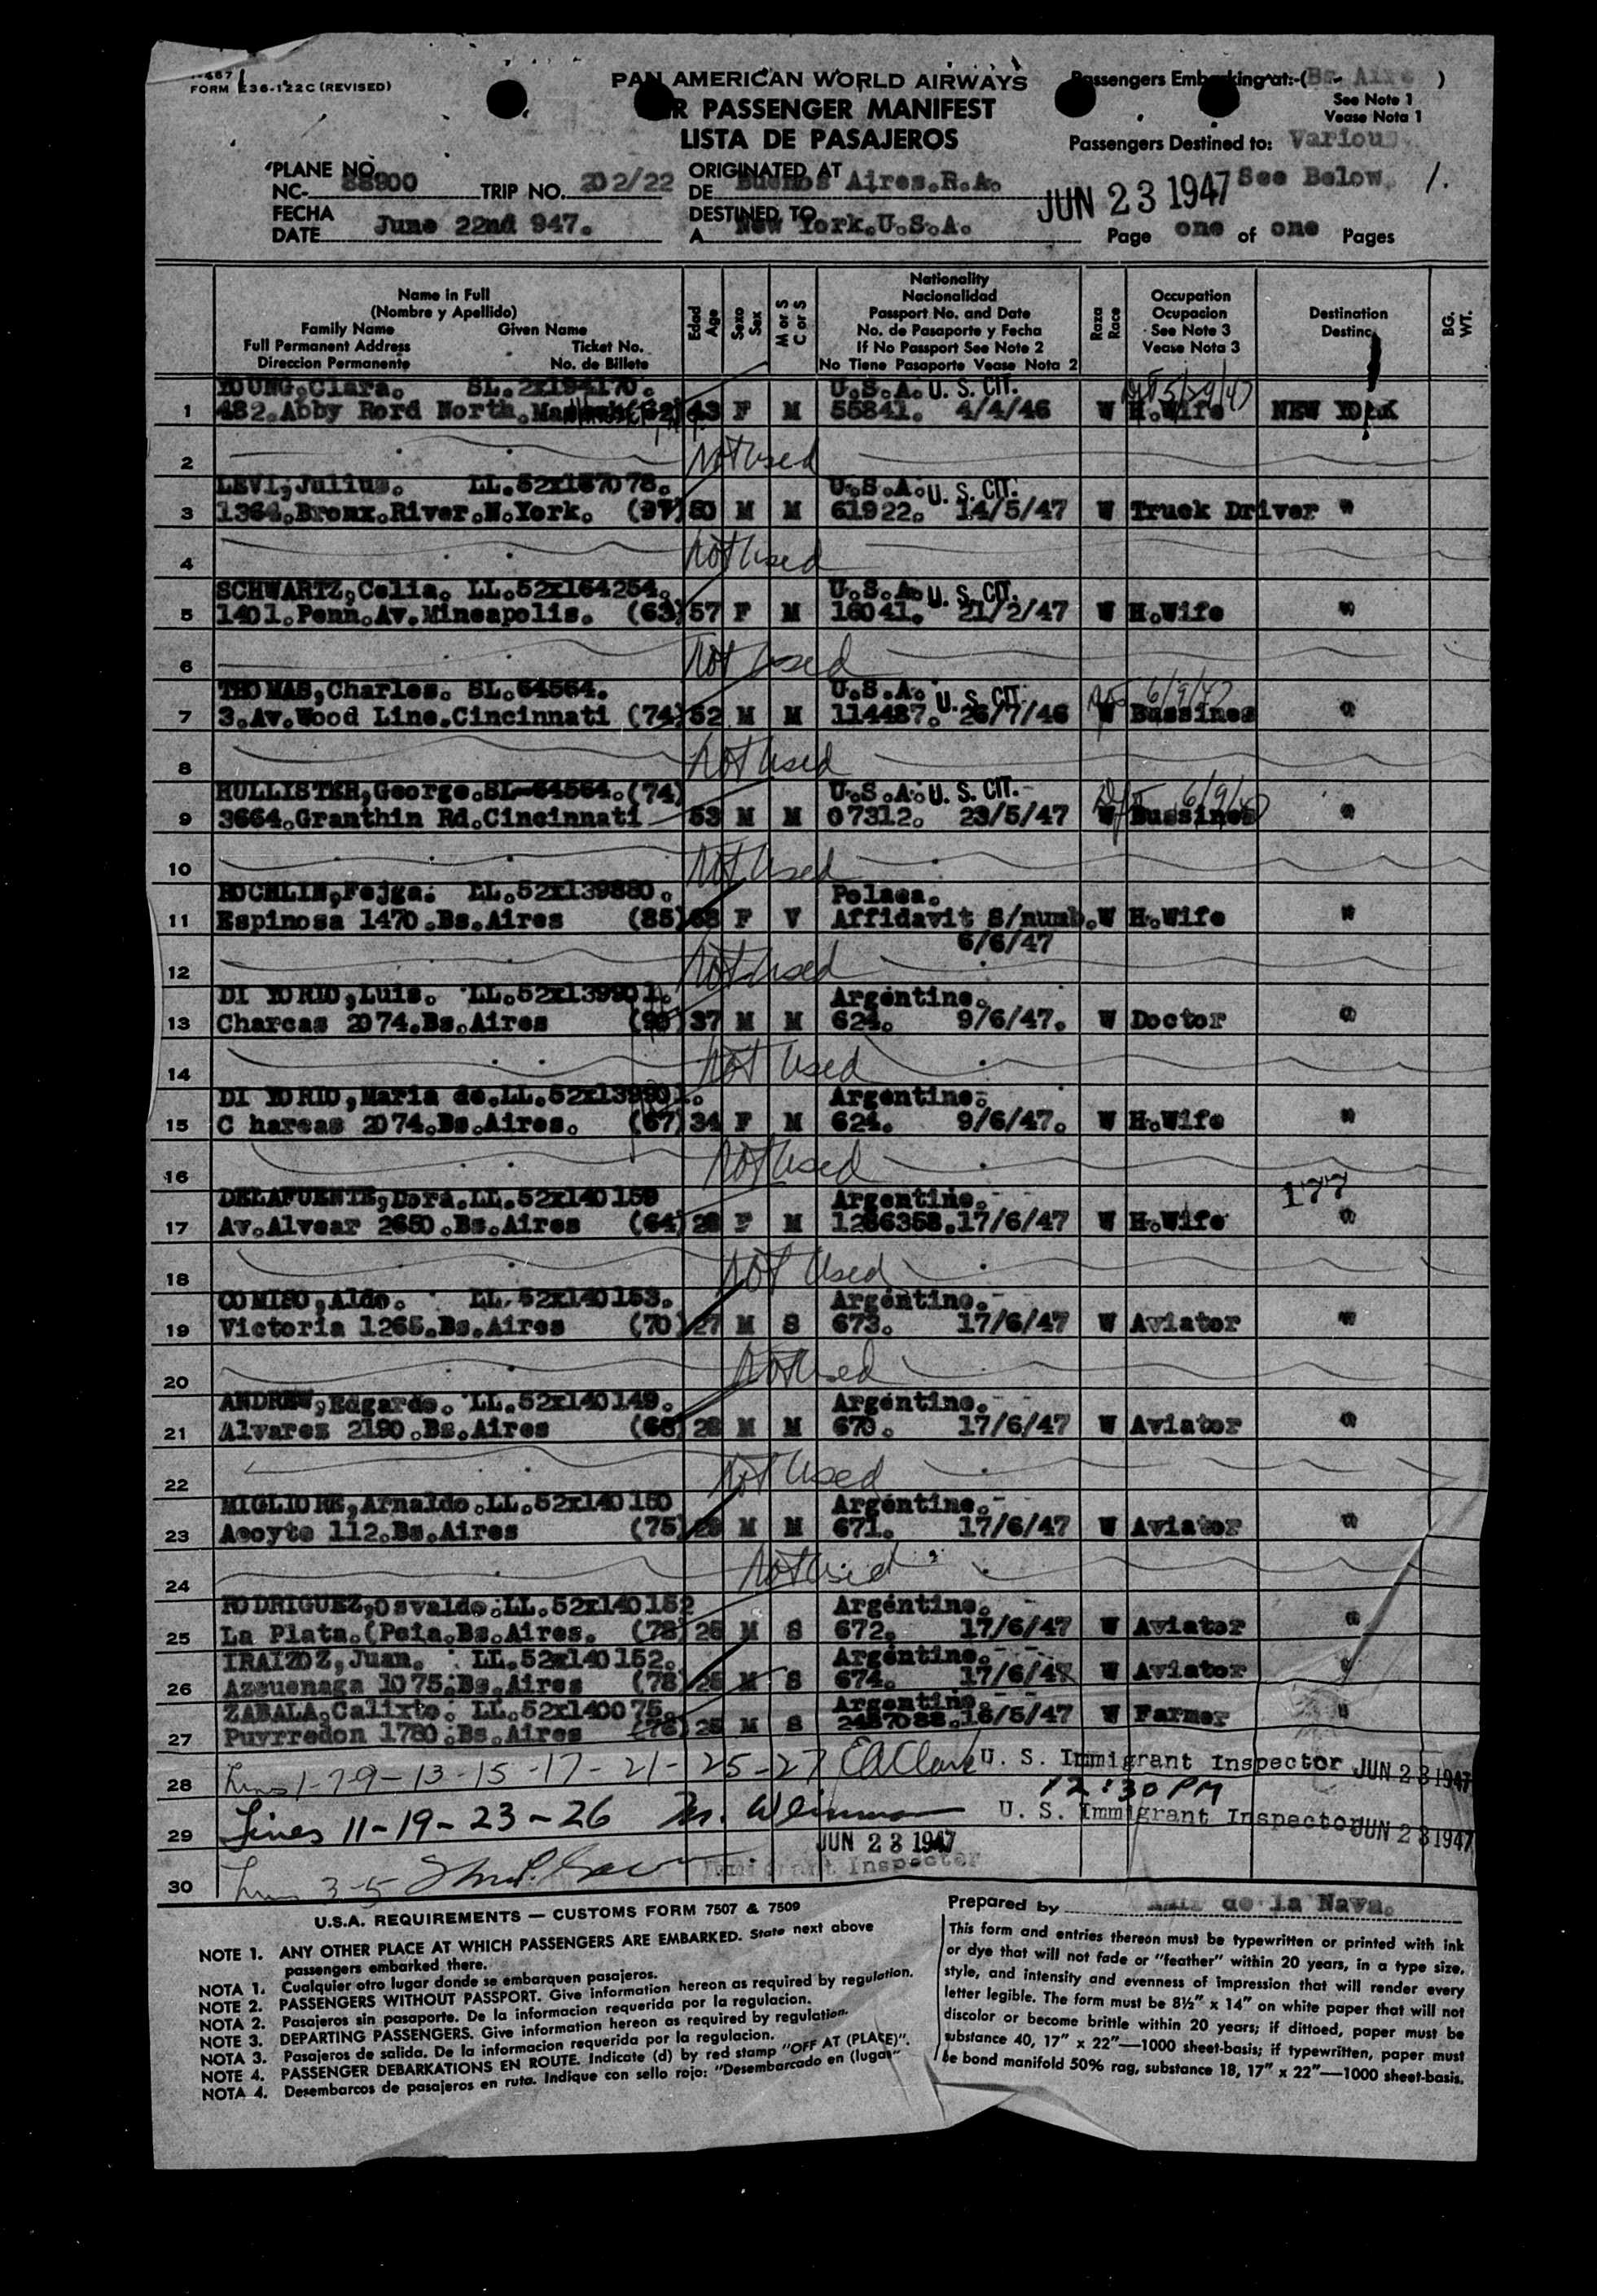 FORM 136-122C (REVISED)
PAN AMERICAN WORLD AIRWAYS
R PASSENGER MANIFEST
LISTA DE PASAJEROS
Passengers Embarking at:-(Bs. Aire )
See Note 1
Vease Nota 1
Passengers Destined to: Various
See Below
PLANE NO.
NC- 88900 TRIP NO. 202/22
FECHA
DATE June 22nd 947.
ORIGINATED AT
DE Buenos Aires.R.A.
DESTINED TO
A New York.U.S.A.
JUN 23 1947
Page one of one Pages
Name in Full
(Nombre y Apellido)
Family Name Given Name
Full Permanent Address Ticket No.
Direccion Permanente No. de Billete
Edad
Age
Sexo
Sex
M or S
C or S
Nationality
Nacionalidad
Passport No. and Date
No. de Pasaporte y Fecha
If No Passport See Note 2
No Tiene Pasaporte Vease Nota 2
Raza
Race
Occupation
Ocupacion
See Note 3
Vease Nota 3
Destination
Destinc
BG.
WT.
YOUNG,Clara. SL.2x194170. U.S.A. U. S. CIT. 5/29/47
1 482.Abby Rord North. (62) 43 F M 55841. 4/4/46 W H.Wife NEW YORK
2 Not Used
LEVI,Julius. LL.52x187078. U.S.A. U. S. CIT.
3 1364.Bronx.River.N.York. (97) 50 M M 61922. 14/5/47 W Truck Driver "
4 Not Used
SCHWARTZ,Celia. LL.52x164254. U.S.A. U. S. CIT.
5 1401.Penn.Av.Mineapolis. (63) 57 F M 16041. 21/2/47 W H.Wife "
6 Not Used
THOMAS,Charles. SL.64564. U.S.A. U. S. CIT. 6/9/47
7 3.Av.Wood Line.Cincinnati (74) 52 M M 114487. 26/7/46 W Bussines "
8 Not Used
HULLISTER,George.SL-64564.(74) U.S.A. U. S. CIT. 6/9/47
9 3664.Granthin Rd.Cincinnati 53 M M 07312. 23/5/47 W Bussines "
10 Not Used
ROCHLIN,Fejga. LL.52x139880. Polaca.
11 Espinosa 1470.Bs.Aires (85) 68 F V Affidavit S/numb. W H.Wife "
6/6/47
12 Not Used
DI YORIO,Luis. LL.52x139901. Argentine.
13 Charcas 2074.Bs.Aires (90) 37 M M 624. 9/6/47. W Doctor "
14 Not Used
DI YORIO,Maria de.LL.52x139901. Argentine.
15 C harcas 2074.Bs.Aires. (67) 34 F M 624. 9/6/47. W H.Wife "
16 Not Used
177
DELAFUENTE,Dora.LL.52x140159 Argentine.
17 Av.Alvear 2650.Bs.Aires (64) 28 F M 1286358.17/6/47 W H.Wife "
18 Not Used
COMISO,Aldo. LL.52x140153. Argentine.
19 Victoria 1265.Bs.Aires (70) 27 M S 673. 17/6/47 W Aviator "
20 Not Used
ANDREW,Edgardo. LL.52x140149. Argentine.
21 Alvarez 2190.Bs.Aires (68) 28 M M 670. 17/6/47 W Aviator "
22 Not Used
MIGLIORE,Arnaldo.LL.52x140150 Argentine.
23 Acoyte 112.Bs.Aires (75) 28 M M 671. 17/6/47 W Aviator "
24 Not Used
RODRIGUEZ,Osvaldo.LL.52x140152 Argentine.
25 La Plata.(Pcia.Bs.Aires. (78) 26 M S 672. 17/6/47 W Aviator "
IRAIZOZ,Juan. LL.52x140152. Argentine.
26 Azcuenaga 1075.Bs.Aires (78) 25 M S 674. 17/6/47 W Aviator "
ZABALA,Calixto. LL.52x140075. Argentine.
27 Puyrredon 1780.Bs.Aires (76) 25 M S 2487088.16/5/47 W Farmer "
28 Lines 1-7-9-13-15-17-21-25-27 EAClark U. S. Immigrant Inspector JUN 23 1947
12:30 PM
29 Lines 11-19-23-26 M. Weinman U. S. Immigrant Inspector JUN 23 1947
JUN 23 1947
30 Lines 3-5 Immigrant Inspector
U.S.A. REQUIREMENTS — CUSTOMS FORM 7507 & 7509
NOTE 1. ANY OTHER PLACE AT WHICH PASSENGERS ARE EMBARKED. State next above
passengers embarked there.
NOTA 1. Cualquier otro lugar donde se embarquen pasajeros.
NOTE 2. PASSENGERS WITHOUT PASSPORT. Give information hereon as required by regulation.
NOTA 2. Pasajeros sin pasaporte. De la informacion requerida por la regulacion.
NOTE 3. DEPARTING PASSENGERS. Give information hereon as required by regulation.
NOTA 3. Pasajeros de salida. De la informacion requerida por la regulacion.
NOTE 4. PASSENGER DEBARKATIONS EN ROUTE. Indicate (d) by red stamp "OFF AT (PLACE)".
NOTA 4. Desembarcos de pasajeros en ruta. Indique con sello rojo: "Desembarcado en (lugar"
Prepared by de la Nava.
This form and entries thereon must be typewritten or printed with ink
or dye that will not fade or "feather" within 20 years, in a type size,
style, and intensity and evenness of impression that will render every
letter legible. The form must be 8½" x 14" on white paper that will not
discolor or become brittle within 20 years; if dittoed, paper must be
substance 40, 17" x 22"—1000 sheet-basis; if typewritten, paper must
be bond manifold 50% rag, substance 18, 17" x 22"—1000 sheet-basis.